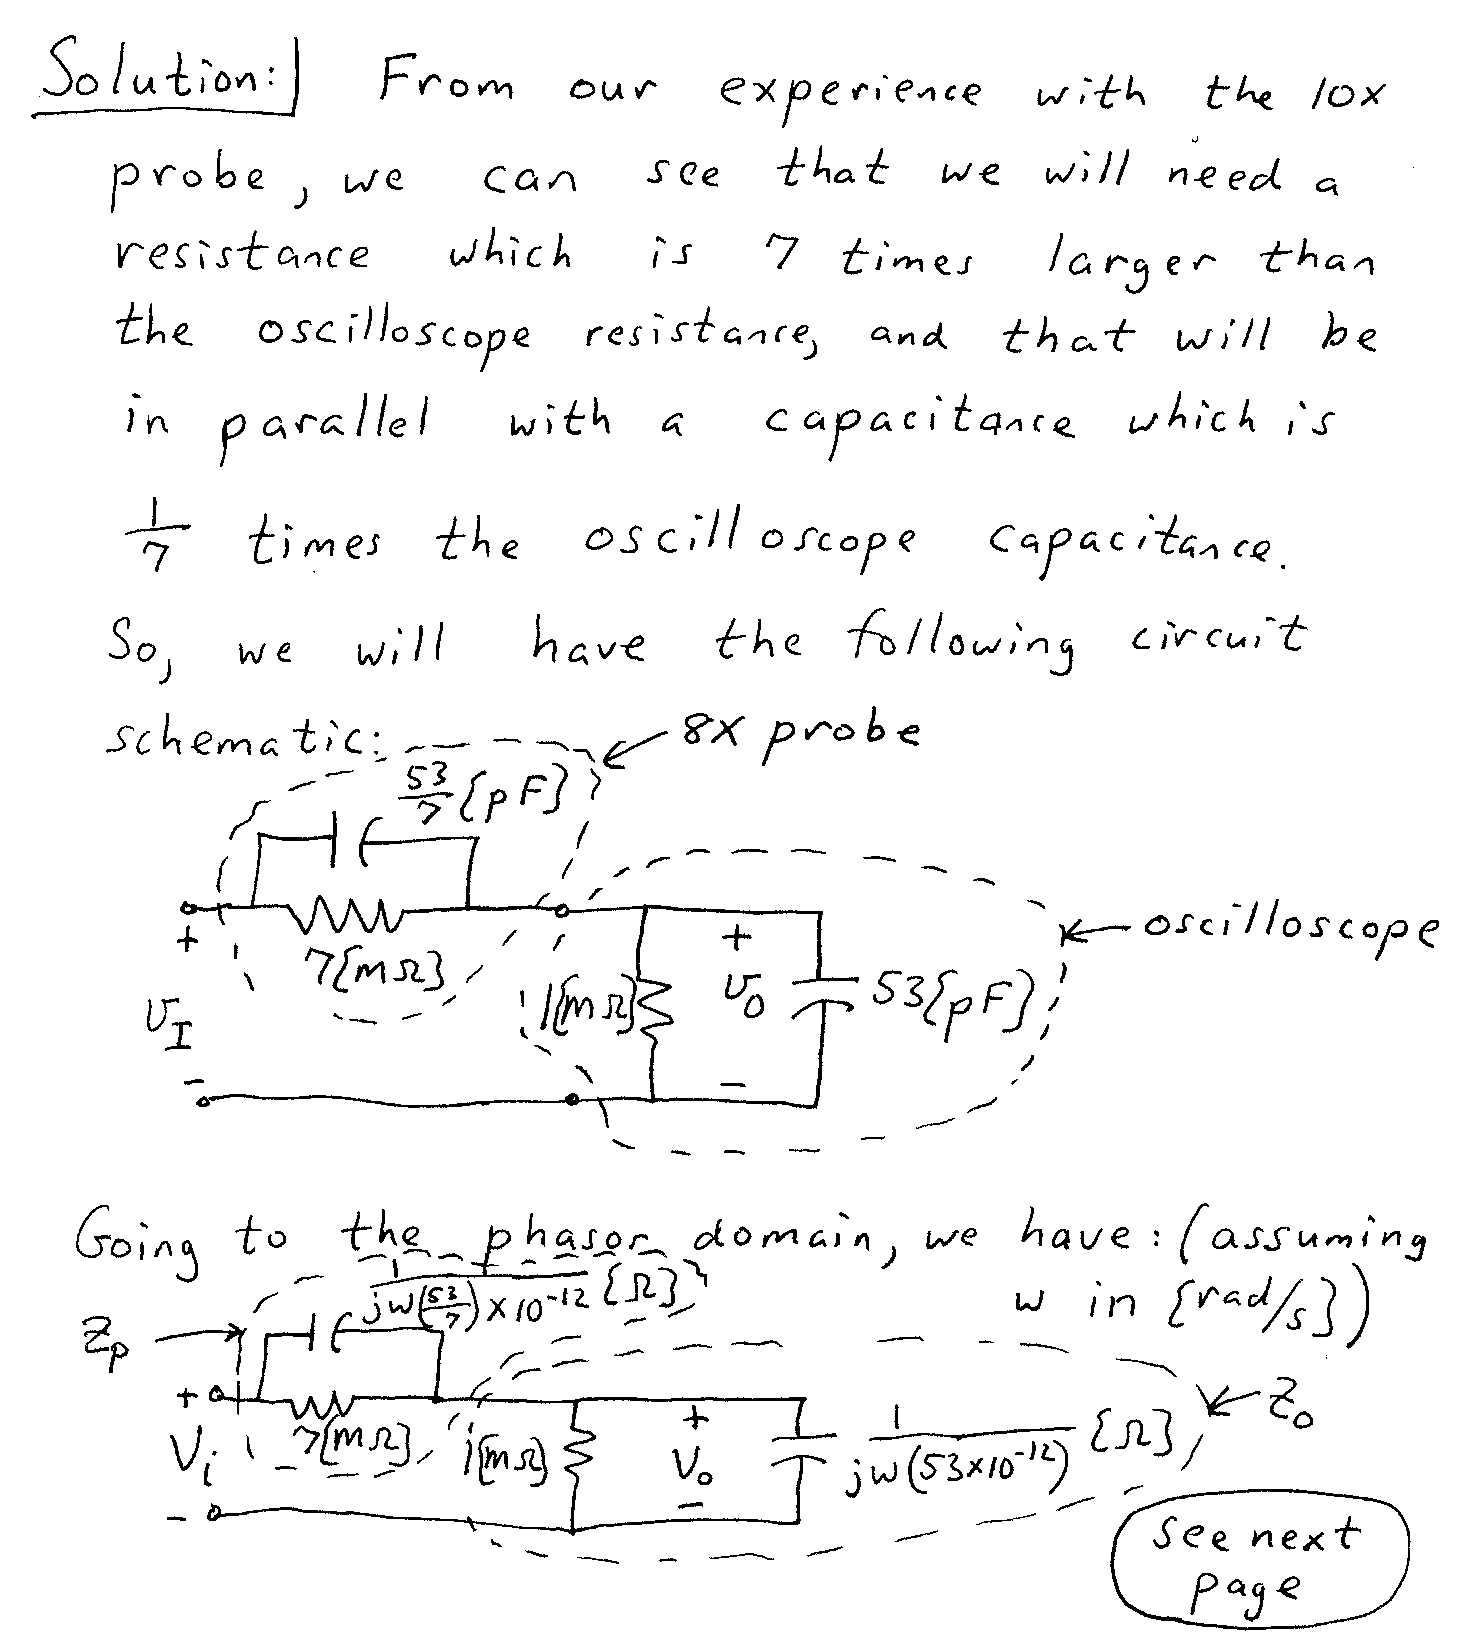 Solution: From our experience with the 10x
probe, we can see that we will need a
resistance which is 7 times larger than
the oscilloscope resistance, and that will be
in parallel with a capacitance which is
1/7 times the oscilloscope capacitance.
So, we will have the following circuit
schematic: 8X probe
53/7 {pF}
oscilloscope
+ 7[MΩ] + 
v_I 1[MΩ] v_O 53{pF}
- -
Going to the phasor domain, we have: (assuming
ω in {rad/s})
1/(jω(53/7)×10^-12) {Ω}
Z_p
+ 7[MΩ] 1[MΩ] + 1/(jω(53×10^-12)) {Ω} Z_o
V_i V_o
- -
see next
page